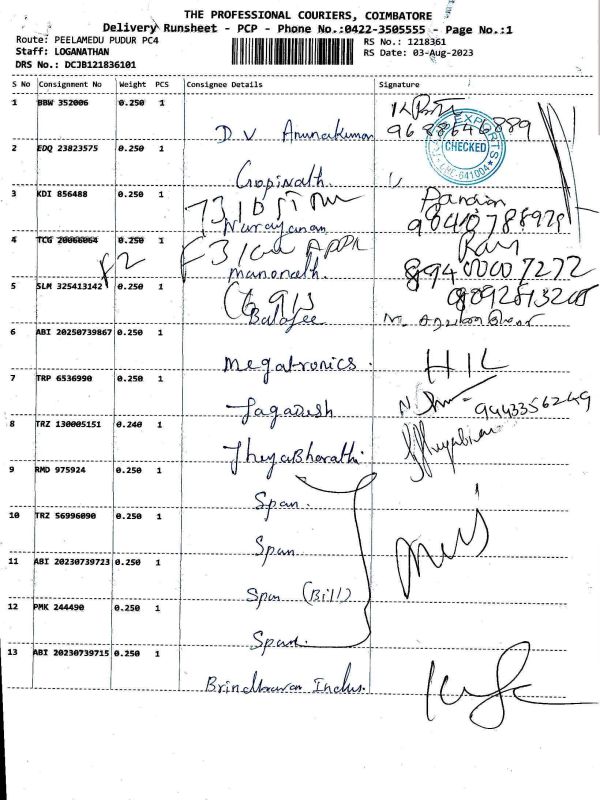 THE PROFESSIONAL COURIERS, COIMBATORE
Delivery Runsheet - PCP - Phone No.:0422-3505555 - Page No.:1
Route: PEELAMEDU PUDUR PC4
RS No.: 1218361
Staff: LOGANATHAN
RS Date: 03-Aug-2023
DRS No.: DCJB121836101
S No Consignment No Weight PCS Consignee Details Signature
1 BBW 352006 0.250 1
D V Arunakumar
9688646889
EXPORTS
CHECKED
2 EDQ 23823575 0.250 1
Gopinath
3 KDI 856488 0.250 1
Narayanan
4 TCG 20066064 0.250 1
F2
Manonath
89400007272
5 SLM 325413142 0.250 1
Balajee
6 ABI 20250739867 0.250 1
Megatronics
HIL
7 TRP 6536990 0.250 1
Jagadesh
9443356249
8 TRZ 130005151 0.240 1
JheyaBharathi
9 RMD 975924 0.250 1
Span
10 TRZ 56996090 0.250 1
Span
11 ABI 20230739723 0.250 1
Span (Bill)
12 PMK 244490 0.250 1
Span
13 ABI 20230739715 0.250 1
Brindhavan Indus.